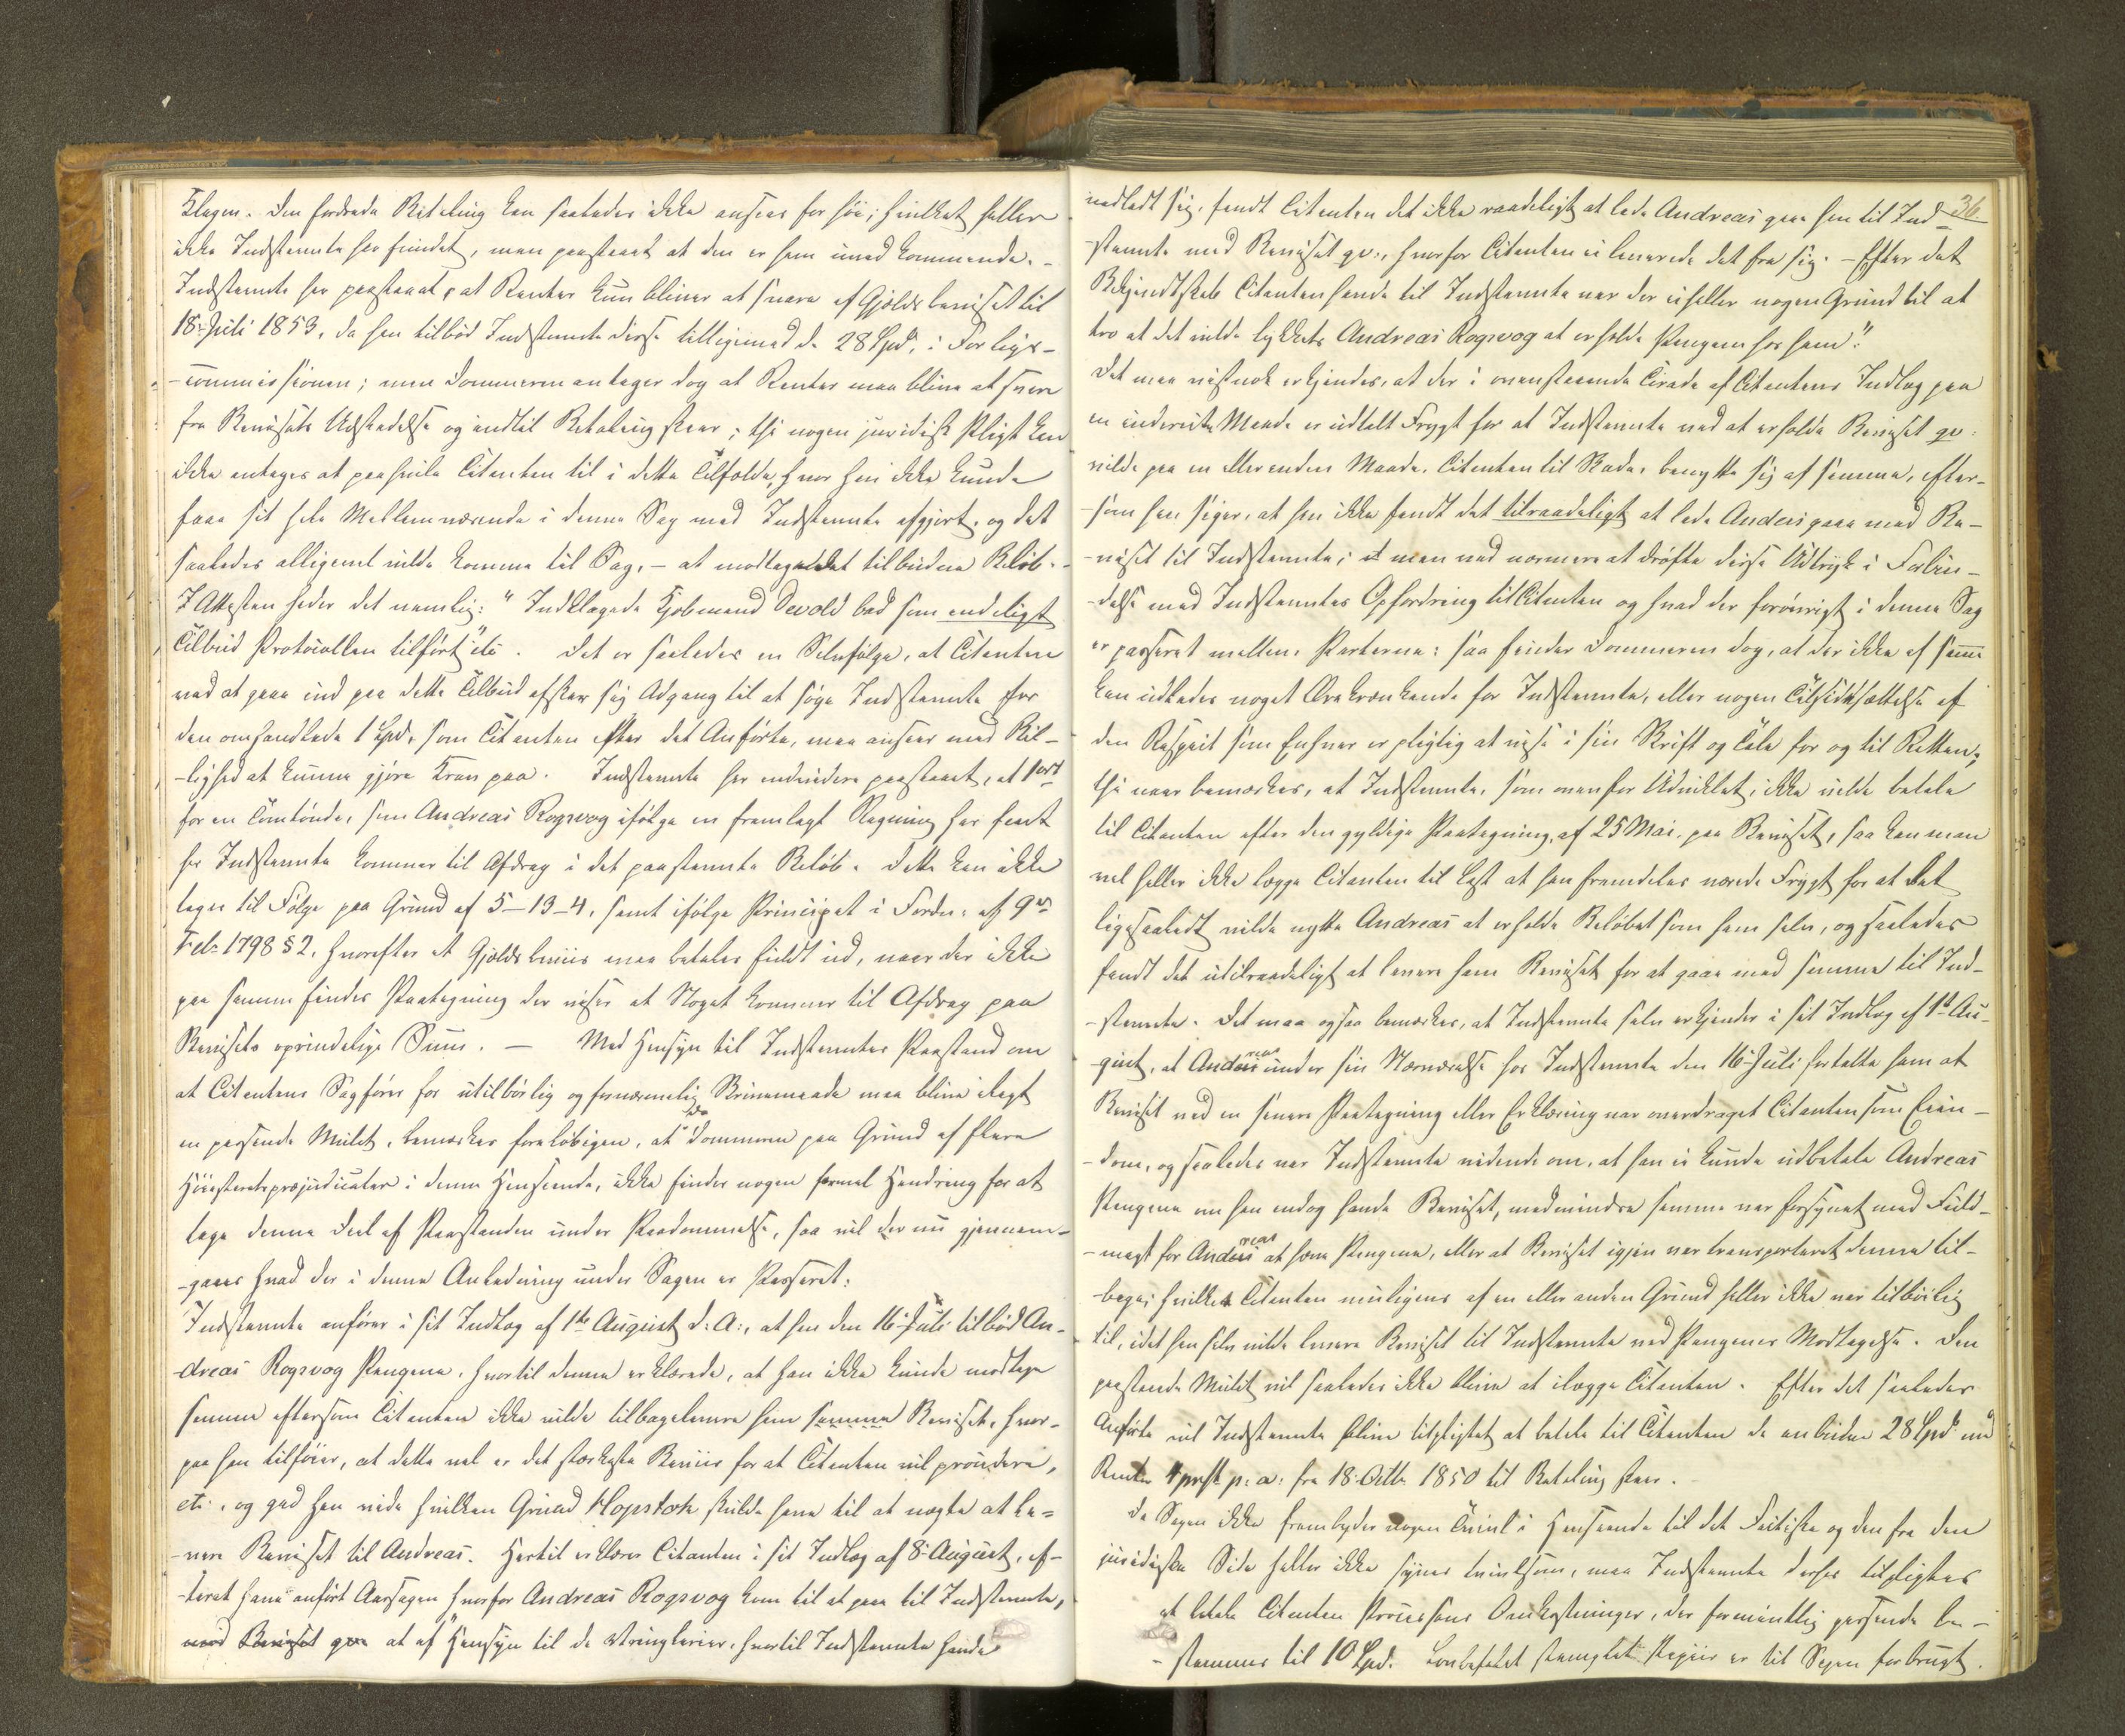 Klagen. Den fordrede Betaling kan saaledes ikke ansees for höi; hvilket heller
ikke Indstevnte har fundet, men paastaaet at den er ham uved kommende. -
Indstevnte har paastaaet, at Renter kun bliver at svare af Gjældsbeviset til
18. Juli 1853, da han tilböd Indstevnte disse tilligemed de 28 Spd. i Forligs-
-commissionen; men Dommeren antager dog at Renter maa blive at svare
fra Bevisets Udstedelse og indtil Betaling skeer; thi nogen juridisk Pligt kan
ikke antages at paahvile Citanten til i dette Tilfælde, hvor han ikke kunde
faae sit hele Mellemværende i denne Sag med Indstevnte afgjort, og det
saaledes alligevel vilde komme til Sag, - at modtage det tilbudne Belöb. -
I Attesten heder det nemlig: "Indklagede Kjöbmand Devold bad som endeligt
Tilbud Protocollen tilfört" etc. Det er saaledes en Selvfölge, at Citanten
ved at gaae ind paa dette Tilbud afskar sig Adgang til at söge Indstevnte for
den omhandlede 1 Spd. som Citanten efter det Anförte, maa ansees med Bil-
-lighed at kunne gjöre Krav paa. Indstevnte har endvidere paastaaet, at 1 ort
for en Tomtönde, som Andreas Rogsvog ifölge en fremlagt Regning har faaet
hos Indstevnte kommer til Afdrag i det paastevnte Belöb. Dette kan ikke
tages til Fölge paa Grund af 5-13-4, samt ifölge Princippet i Fordn: af 9de
Feb. 1798 § 2, hvorefter et Gjældsbeviis maa betales fuldt ud, naar der ikke
paa samme findes Paategning der viser at Noget kommer til Afdrag paa
Bevisets oprindelige Sum. - Med Hensyn til Indstevntes Paastand om
at Citantens Sagförer for utilbörlig og fornærmelig Skrivemaade maa blive ilagt
en passende Mulct, bemærkes foreløbigen, at da Dommeren paa Grund af flere
Höiesteretspræjudicater i denne Henseende, ikke finder nogen formel Hindring for at
tage denne Deel af Paastanden under Paadømmelse, saa vil der nu gjennem-
-gaaes hvad der i denne Anledning under Sagen er Passeret:
Indstevnte anförer i sit Indlæg af 1ste August d: A:, at han den 16 Juli tilböd An-
-dreas Rogsvog Pengene, hvortil denne erklærede, at han ikke kunde modtage
samme eftersom Citanten ikke vilde tilbagelevere ham samme Beviset, hvor-
paa han tilföier, at dette vel er det stærkeste Beviis for at Citanten vil procedere,
etc., og gad han vide hvilken Grund Klopstok skulde have til at nægte at le-
-vere Beviset til Andreas. Hertil erklærer Citanten i sit Indlæg af 8. August, ef-
-terat have anfört Aarsagen hvorfor Andreas Rogsvog kom til at gaae til Indstevnte,
med Beviset qvæ at af "Hensyn til de Stringlerier, hvortil Indstevnte havde
36
nedladt sig, fandt Citanten det ikke raadeligt at lade Andreas gaae hen til Ind-
stevnte med Beviset qv., hvorfor Citanten ei leverede det fra sig. - Efter det
Bekjendtskab Citanten havde til Indstevnte var der ei heller nogen Grund til at
tro at det vilde lykkets Andreas Rogsvog at erholde Pengene hos ham."
Det maa vistnok erkjendes, at der i ovenstaaende Tirade af Citantens Indlæg paa
en indirecte Maade er udtalt Frygt for at Indstevnte ved at erholde Beviset qv.
vilde paa en eller anden Maade, Citanten til Skade, benytte sig af samme, efter-
-som han siger, at han ikke fandt det tilraadeligt at lade Andreas gaae med Be-
-viset til Indstevnte; men ved nærmere at dröfte disse Udtryk i Forbin-
-delse med Indstevntes Opfordring til Citanten og hvad der forövrigt i denne Sag
er passeret mellem Parterne: saa finder Dommeren dog, at der ikke af samme
kan udledes noget Ærekrænkende for Indstevnte, eller nogen Tilsidesættelse af
den Respect som Enhver er pligtig at vise i sin Skrift og Tale for og til Retten;
thi naar bemærkes, at Indstevnte, som ovenfor Udviklet, ikke vilde betale
til Citanten efter den gyldige Paategning, af 25 Mai, paa Beviset, saa kan man
vel heller ikke lægge Citanten til Last at han fremdeles nærede Frygt for at det
ligesaalidt vilde nytte Andreas at erholde Belöbet som ham selv, og saaledes
fandt det utilraadeligt at levere ham Beviset for at gaae med samme til Ind-
-stevnte. Det maa ogsaa bemærkes, at Indstevnte selv erkjender i sit Indlæg af 1ste Au-
-gust, at Andreas under sin Nærværelse hos Indstevnte den 16. Juli fortalte ham at
Beviset ved en senere Paategning eller Erklæring var overdraget Citanten som Eien-
-dom, og saaledes var Indstevnte vidende om, at han ei kunde udbetale Andreas
Pengene om han endog havde Beviset, medmindre samme var forsynet med Fuld-
-magt for Andreas at hæve Pengene, eller at Beviset igjen var transporteret denne til-
-bage; hvilket Citanten muligens af en eller anden Grund heller ikke var tilböielig
til, idet han selv vilde levere Beviset til Indstevnte ved Pengenes Modtagelse. Den
paastaaede Mulct vil saaledes ikke blive at ilægge Citanten. Efter det saaledes
Anförte vil Indstevnte blive tilpligtet at betale til Citanten de anbudne 28 Spd. med
Renter 4 prct. p: a: fra 18. Octb. 1850 til Betaling skeer.
Da Sagen ikke frembyder nogen Tvivl i Henseende til det Factiske og den fra den
juridiske Side heller ikke synes tvivlsom, maa Indstevnte derfor tilpligtes
at betale Citanten Processens Omkostninger, der formeentlig passende be-
-stemmes til 10 Spd. Lovbefalet stemplet Papiir er til Sagen forbrugt.